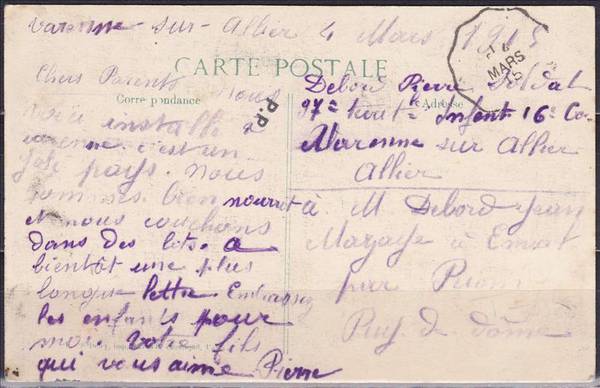 Varenne sur Allier 4 Mars 1915
CARTE POSTALE
Correspondance
Adresse
MARS
15
P.P.
Chers Parents nous
installé à
varenne c'est un
joli pays. nous
sommes bien nourret
nous couchons
dans des lits. a
bientôt une plus
longue lettre Embrassez
les enfants pour
moi votre fils
qui vous aime Pierre
Debord Pierre Soldat
97e Infent 16e Co
Varenne sur Allier
Allier
à M Debord Jean
Mazaye à
par Riom
Puy de dôme